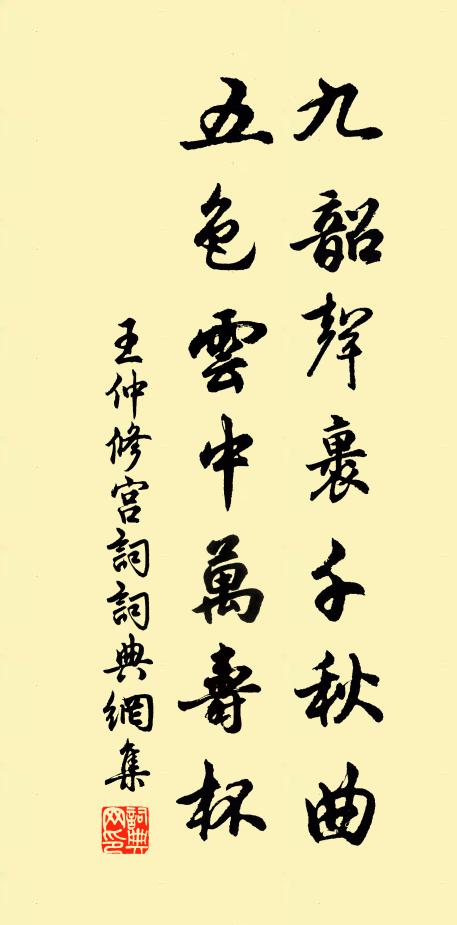 九韶聲裏千秋曲
五色雲中萬壽杯
王仲修宫詞詞典網集
詞典網印